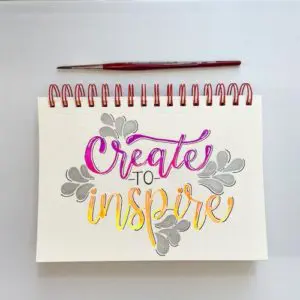 Create
-TO-
inspire